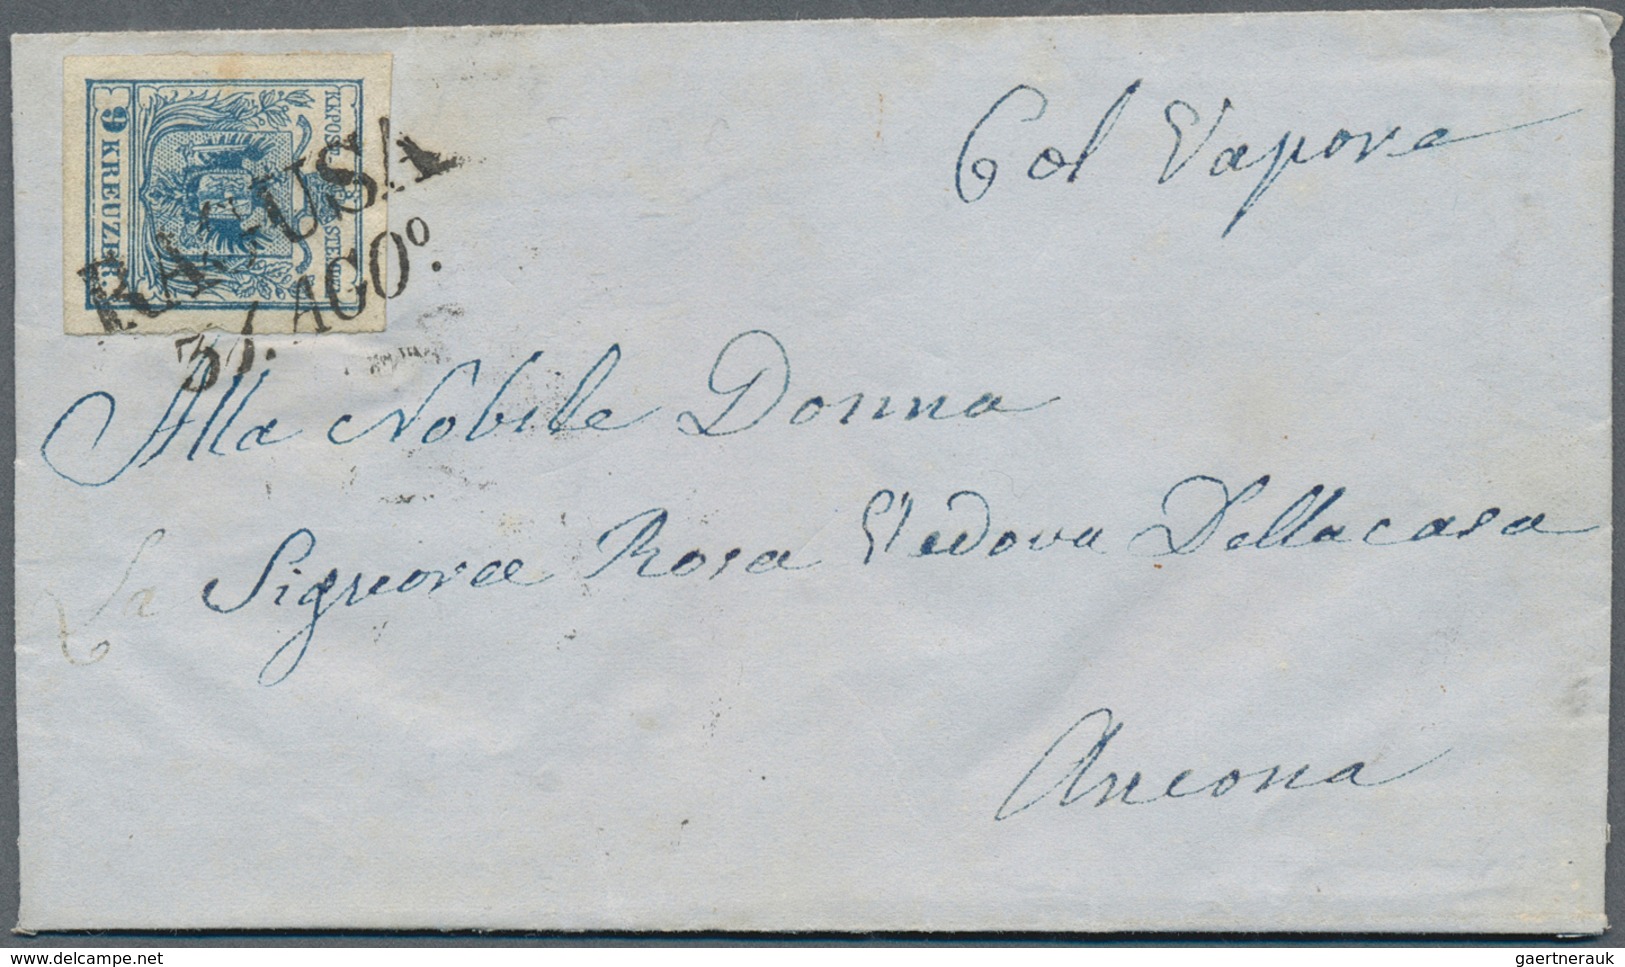 KKPOST STEMPEL
9 KREUZER
RAGUSA
31. AGO°.
Col Vapore
Alla Nobile Donna
La Signora Rosa Vedova Dellacasa
Ancona
delcampe.net
gaertnerauk